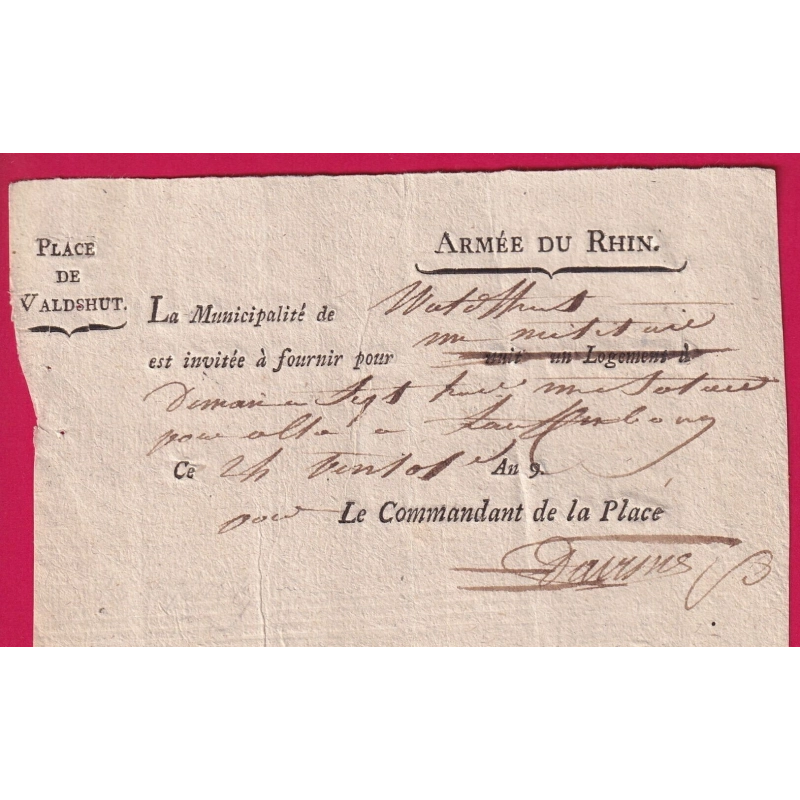 PLACE
DE
VALDSHUT.
ARMÉE DU RHIN.
La Municipalité de Waldshut
est invitée à fournir pour un militaire
nuit un Logement à
Demain a Sept heure
pour allé a Lauffenbourg
Ce 24 Ventose An 9.
pour Le Commandant de la Place